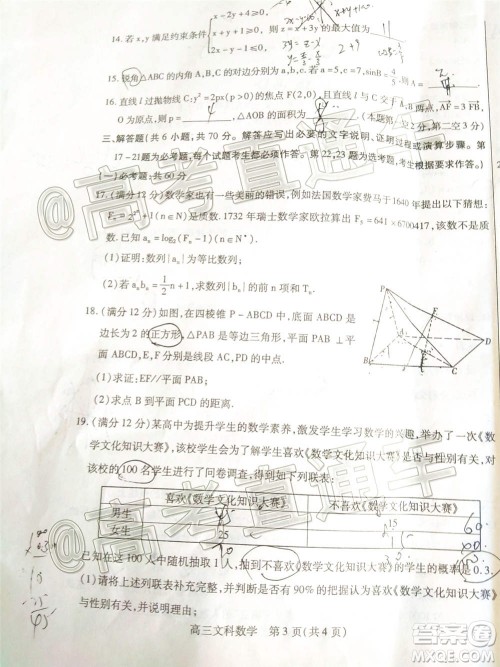 x-2y+4≥0
14. 若 x,y 满足约束条件 x+y+1≥0, 则 z=3x+y 的最大值为 11
2x-y-1≤0
15. 锐角△ABC的内角A,B,C的对边分别为a,b,c,若 a=5,c=7,sinB=4/5,则△ABC
16. 直线 l 过抛物线 C:y²=2px(p>0)的焦点 F(2,0),且与 C 交于 A,B 两点,AF=3FB,
O为原点,则 p= ,△AOB的面积为 (本题第一空2分,第二空3分)
三、解答题(共6小题,共70分。解答应写出必要的文字说明、证明过程或演算步骤。第
17-21题为必考题,每个试题考生都必须作答。第22,23题为选考题,考生根据要求作答。)
(一)必考题:共60分
17. (满分12分)数学家也有许多美丽的错误,例如法国数学家费马于1640年提出以下猜想:
Fₙ=2^(2ⁿ)+1(n∈N)是质数.1732年瑞士数学家欧拉算出F₅=641×6700417,该数不是质
数.已知 aₙ=log₂(Fₙ-1)(n∈N)
(1)证明:数列{aₙ}为等比数列;
(2)若 aₙbₙ=1/2n+1,求数列{bₙ}的前n项和Tₙ.
18. (满分12分)如图,在四棱锥 P-ABCD 中,底面 ABCD 是
边长为2的正方形,△PAB是等边三角形,平面PAB⊥平
面ABCD,E,F分别是线段AC,PD的中点.
(1)求证:EF//平面PAB;
(2)求点B到平面PCD的距离.
P
F
A
D
E
B
C
19. (满分12分)某高中为提升学生的数学素养,激发学生学习数学的兴趣,举办了一次《数
学文化知识大赛》,该校学生会为了解学生喜欢《数学文化知识大赛》是否与性别有关,对
该校的100名学生进行了问卷调查,得到如下列联表:
喜欢《数学文化知识大赛》 不喜欢《数学文化知识大赛》
男生 15 60
女生 25
已知在这100人中随机抽取1人,抽到不喜欢《数学文化知识大赛》的学生的概率是0.3.
(1)请将上述列联表补充完整,并判断是否有90%的把握认为喜欢《数学文化知识大赛》
与性别有关,并说明理由;
高三文科数学 第3页(共4页)
@高考直通车
@高考直通车